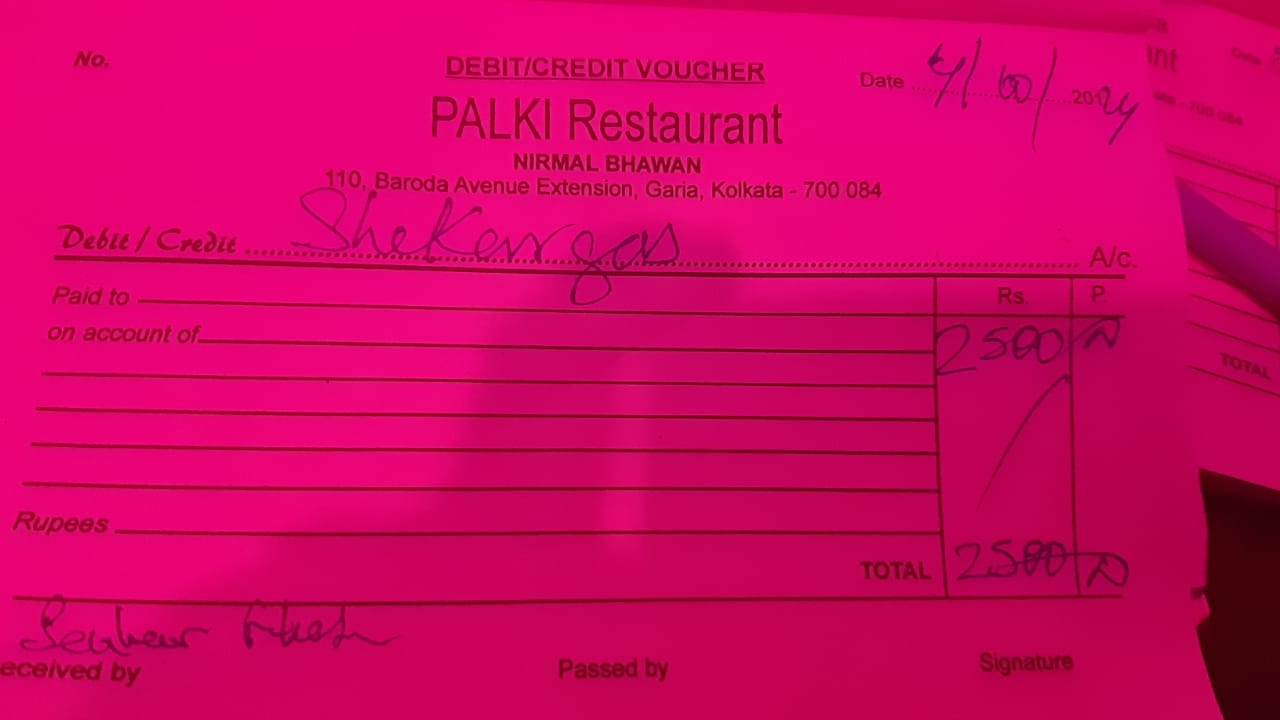 No.
DEBIT/CREDIT VOUCHER
Date ............ 2024
PALKI Restaurant
NIRMAL BHAWAN
110, Baroda Avenue Extension, Garia, Kolkata - 700 084
Debit / Credit ........ Shekerr gas ........ A/c.
Paid to
Rs. P.
on account of
2500
Rupees
TOTAL 2500
eceived by
Passed by
Signature
nt
Date
700 084
TOTAL